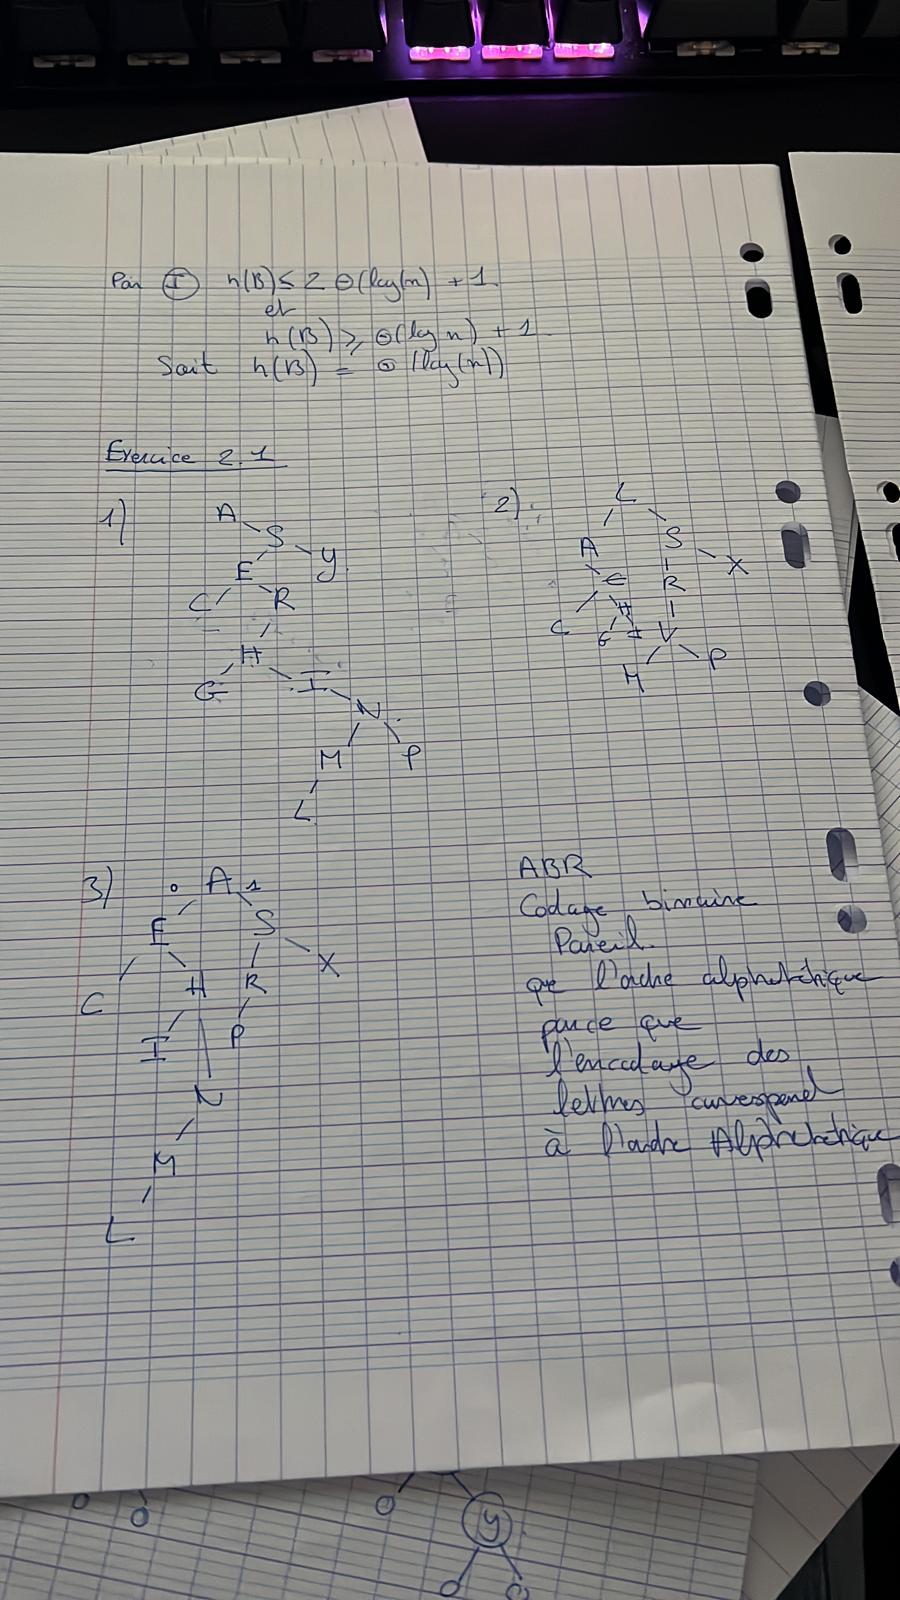 Par I h(B) ≤ 2 Θ(log(n) + 1.
et
h(B) ≥ Θ(log n) + 1.
Soit h(B) = Θ(log(n))
Exercice 2.1
1)
A
S
E y
C R
H
G I
N
M P
L
2)
L
A S
E X
R
C H
G I V
M P
3) 0 A 1
E S
X
C H R
I P
N
M
L
ABR
Codage binaire
Pareil.
que l'ordre alphabétique
parce que
l'encodage des
lettres correspond
à l'ordre Alphabétique
y